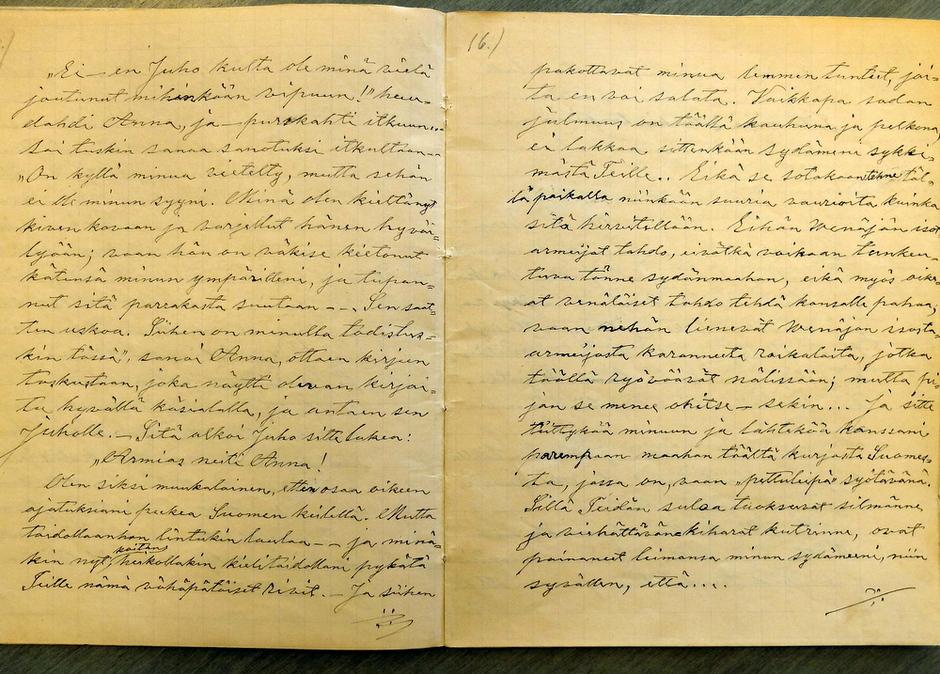 „Ei – en Juho kulta ole minä vielä
joutunut mihinkään vipuun!" huu-
dahti Anna, ja – purskahti itkuun...
Sai tuskin sanaa sanotuksi itkultaan –
„On kyllä minua vietelty, mutta sehän
ei ole minun syyni. Minä olen kieltänyt
kiven kovaan ja varjellut hänen hyväi-
lyään; vaan hän on väkise kietonut
kätensä minun ympärilleni, ja tupan-
nut sitä parrakasta suutaan – –, Sen saat-
ten uskoa. Siihen on minulla todistus-
kin tässä", sanoi Anna, ottaen kirjeen
taskustaan, joka näytti olevan kirjoi-
tu hyvällä käsialalla, ja antaen sen
Juholle. – Sitä alkoi Juho sitte lukea:
„Armias neiti Anna!
Olen siksi muukalainen, etten osaa oikeen
ajatuksiani pukea Suomen kielellä. Mutta
taidollaanhan lintukin laulaa – – ja minä-
kin nyt, koitan heikollakin kielitaidollani pykätä
Teille nämä vähäpätöiset rivit. – Ja siihen
16.)
pakottavat minua lemmen tunteet, joi-
ta en voi salata. Vaikkapa sodan
julmuus on täällä kauhuna ja pelkona,
ei lakkaa sittenkään sydämeni sykki-
mästä Teille.. Eikä se sotakaan tehne täl-
lä paikalla niinkään suuria vaurioita kuinka
sitä hirvitellään. Eihän Wenäjän isot
armeijat tahdo, eivätkä voikaan tunkeu-
tuva tänne sydänmaahan, eikä myös oike-
at venäläiset tahdo tehdä kansalle pahaa,
vaan nehän lienevät Wenäjän isosta-
armeijasta karanneita roikaleita, jotka
täällä ryöväävät nälissään; mutta pi-
jan se menee ohitse – sekin... Ja sitte
tiittykää minuun ja lähtekää kanssani
parempaan maahan täältä kurjasta Suomes-
ta, jossa on, vaan „pettuleipä" syötävänä.
Sillä Teidän suloa tuoksuvat silmänne,
ja viehättävän kiharat kutrinne, ovat
painaneet leimansa minun sydämeeni, niin
syvälten, että....